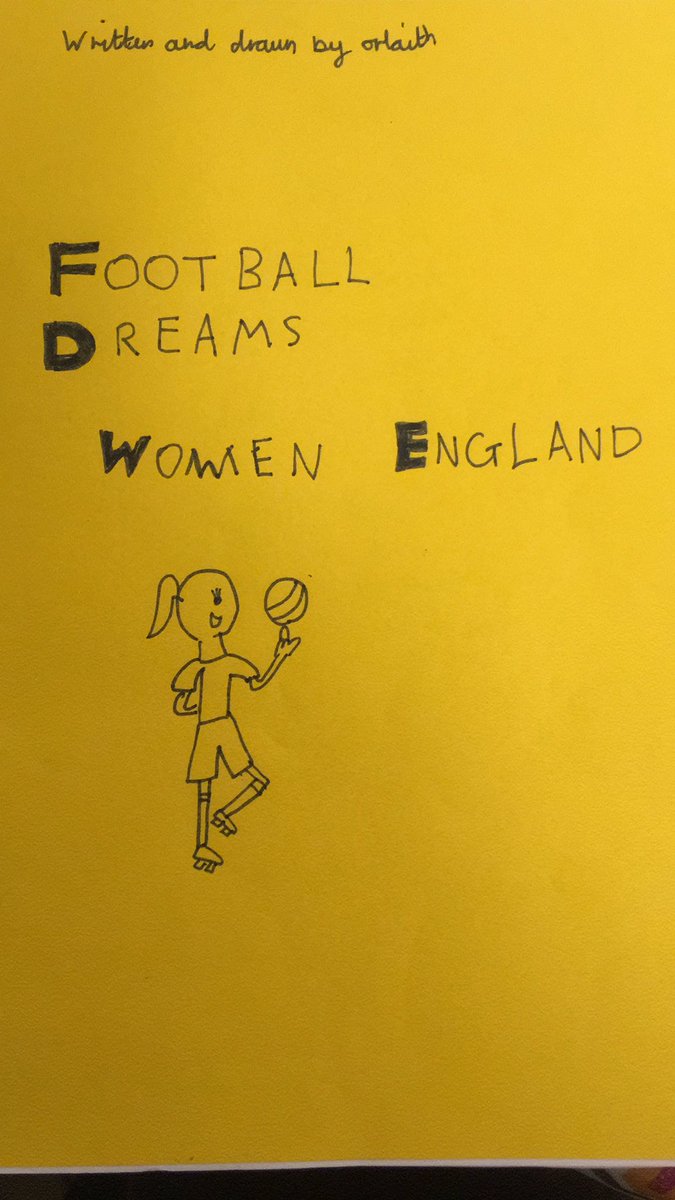 Written and drawn by orlaith
FOOTBALL
DREAMS
WOMEN ENGLAND